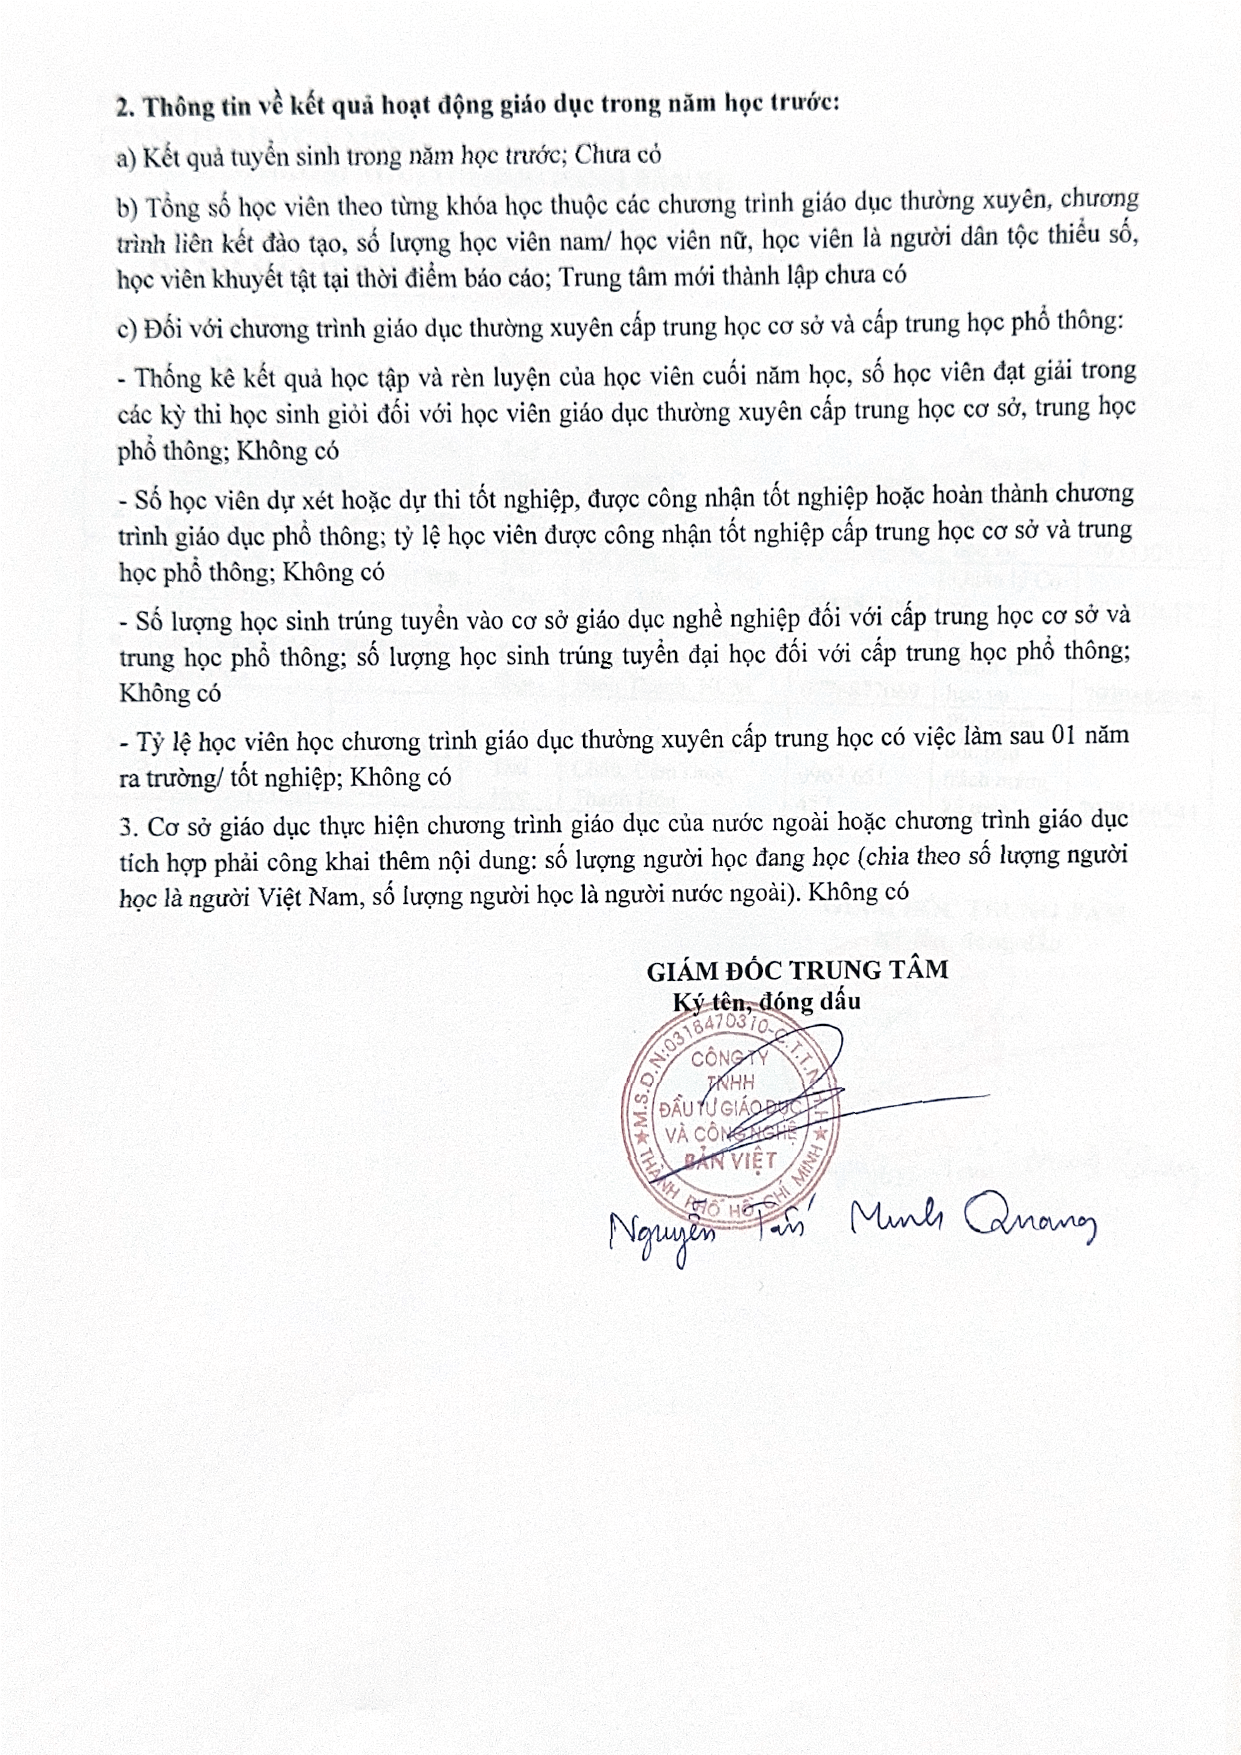 2. Thông tin về kết quả hoạt động giáo dục trong năm học trước:
a) Kết quả tuyển sinh trong năm học trước; Chưa có
b) Tổng số học viên theo từng khóa học thuộc các chương trình giáo dục thường xuyên, chương
trình liên kết đào tạo, số lượng học viên nam/ học viên nữ, học viên là người dân tộc thiểu số,
học viên khuyết tật tại thời điểm báo cáo; Trung tâm mới thành lập chưa có
c) Đối với chương trình giáo dục thường xuyên cấp trung học cơ sở và cấp trung học phổ thông:
- Thống kê kết quả học tập và rèn luyện của học viên cuối năm học, số học viên đạt giải trong
các kỳ thi học sinh giỏi đối với học viên giáo dục thường xuyên cấp trung học cơ sở, trung học
phổ thông; Không có
- Số học viên dự xét hoặc dự thi tốt nghiệp, được công nhận tốt nghiệp hoặc hoàn thành chương
trình giáo dục phổ thông; tỷ lệ học viên được công nhận tốt nghiệp cấp trung học cơ sở và trung
học phổ thông; Không có
- Số lượng học sinh trúng tuyển vào cơ sở giáo dục nghề nghiệp đối với cấp trung học cơ sở và
trung học phổ thông; số lượng học sinh trúng tuyển đại học đối với cấp trung học phổ thông;
Không có
- Tỷ lệ học viên học chương trình giáo dục thường xuyên cấp trung học có việc làm sau 01 năm
ra trường/ tốt nghiệp; Không có
3. Cơ sở giáo dục thực hiện chương trình giáo dục của nước ngoài hoặc chương trình giáo dục
tích hợp phải công khai thêm nội dung: số lượng người học đang học (chia theo số lượng người
học là người Việt Nam, số lượng người học là người nước ngoài). Không có
GIÁM ĐỐC TRUNG TÂM
Ký tên, đóng dấu
M.S.D.N:0318470310-C.T.T.N.H.H
CÔNG TY
TNHH
ĐẦU TƯ GIÁO DỤC
VÀ CÔNG NGHỆ
BẢN VIỆT
THÀNH PHỐ HỒ CHÍ MINH
Nguyễn Tấn Minh Quang